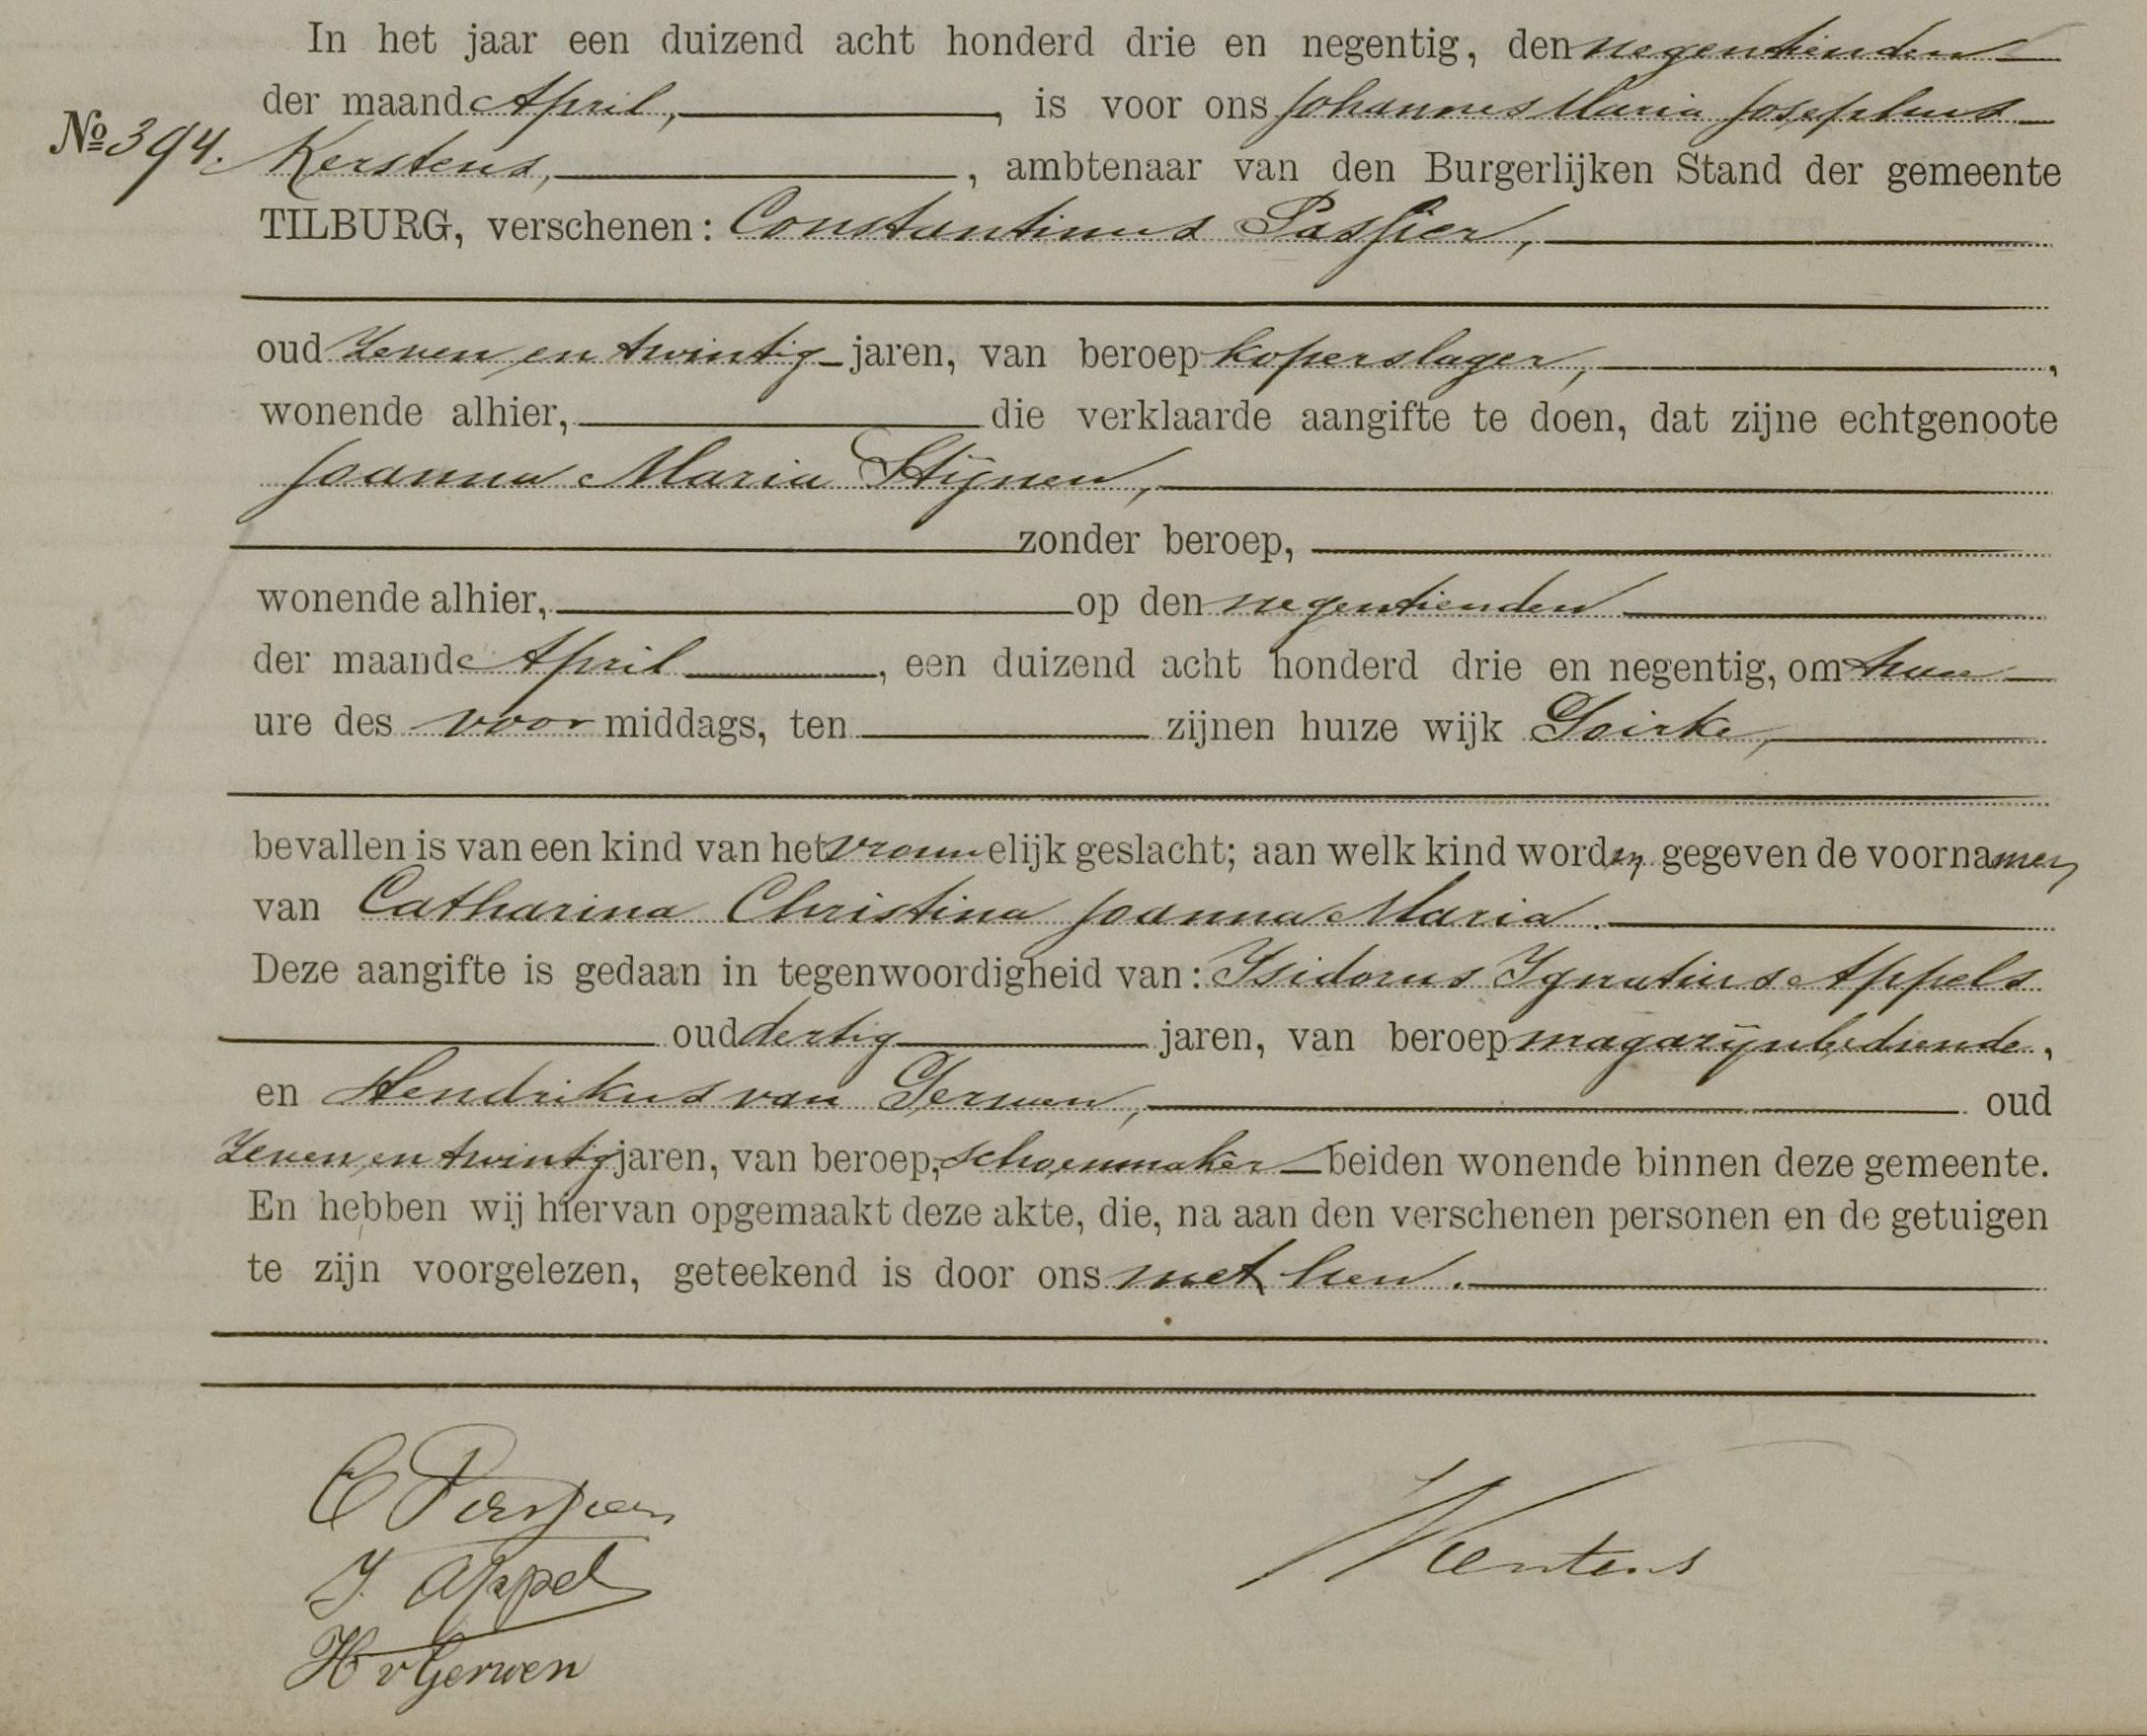 In het jaar een duizend acht honderd drie en negentig, den negentienden
der maand April, , is voor ons Johannes Maria Josephus
No 394. Kerstens, , ambtenaar van den Burgerlijken Stand der gemeente
TILBURG, verschenen: Constantinus Passier,
oud zeven en twintig jaren, van beroep koperslager, ,
wonende alhier, die verklaarde aangifte te doen, dat zijne echtgenoote
Joanna Maria Stijnen,
zonder beroep,
wonende alhier, op den negentienden
der maand April , een duizend acht honderd drie en negentig, om twee
ure des voor middags, ten zijnen huize wijk Goirke,
bevallen is van een kind van het vrouwelijk geslacht; aan welk kind worden gegeven de voornamen
van Catharina Christina Joanna Maria.
Deze aangifte is gedaan in tegenwoordigheid van: Isidorus Ignatius Appels
oud dertig jaren, van beroep magazijnbediende,
en Hendrikus van Gerwen, oud
zeven en twintig jaren, van beroep, schoenmaker beiden wonende binnen deze gemeente.
En hebben wij hiervan opgemaakt deze akte, die, na aan den verschenen personen en de getuigen
te zijn voorgelezen, geteekend is door ons met hen.
C
I. Appel
H v Gerwen
Kerstens